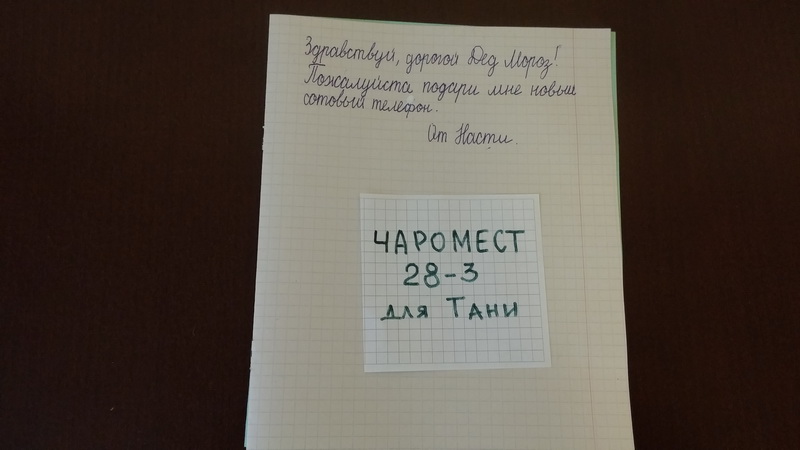 Здравствуй, дорогой Дед Мороз!
Пожалуйста подари мне новый
сотовый телефон.
От Насти.
ЧАРОМЕСТ
28-3
для Тани